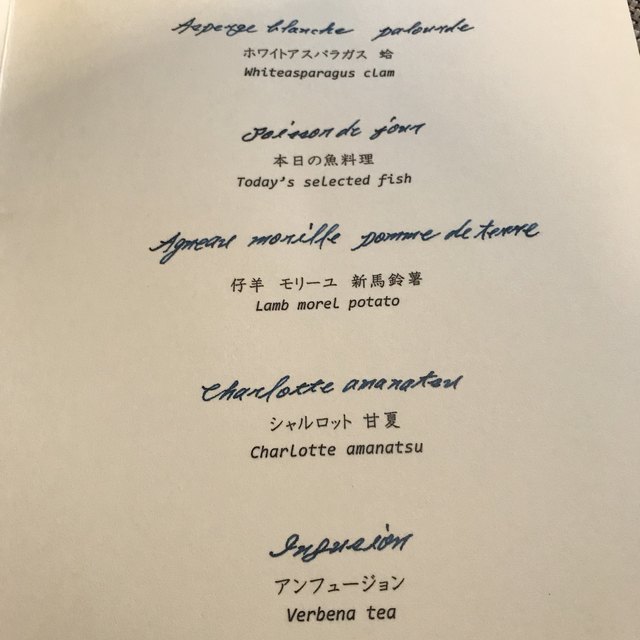 Asperge blanche palourde
ホワイトアスパラガス 蛤
Whiteasparagus clam
Poisson de jour
本日の魚料理
Today's selected fish
Agneau morille pomme de terre
仔羊 モリーユ 新馬鈴薯
Lamb morel potato
Charlotte amanatsu
シャルロット 甘夏
Charlotte amanatsu
Infusion
アンフュージョン
Verbena tea